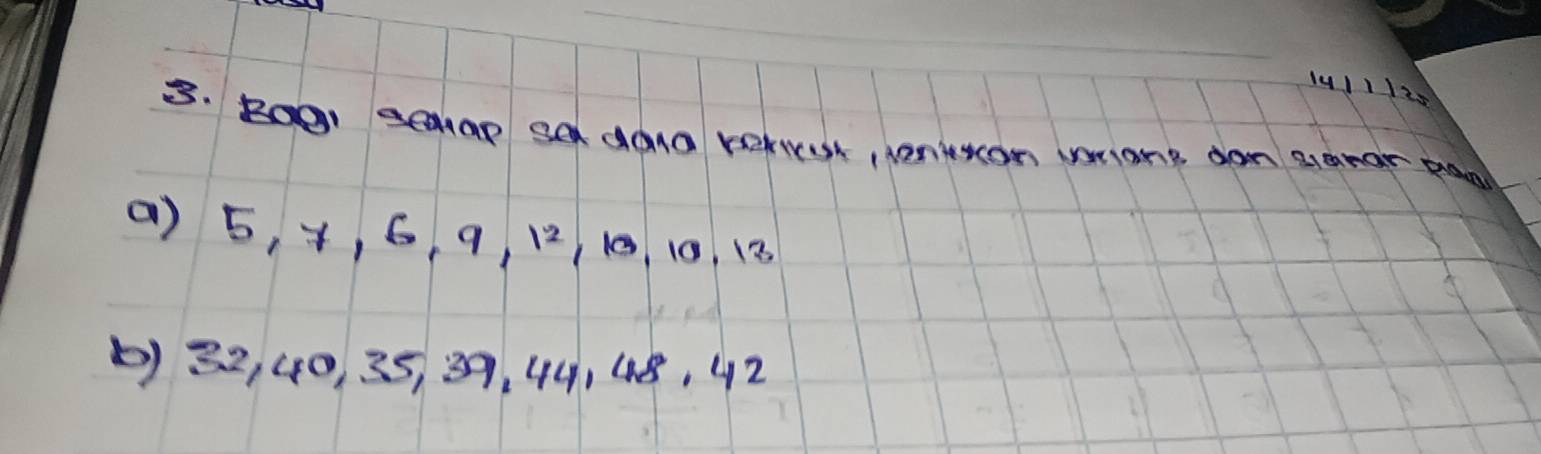 14/1/25
3. Bagi setiap set data berikut, tentukan varians dan sisihan piawai
a) 5, 7, 6, 9, 12, 10, 10, 13
b) 32, 40, 35, 39, 44, 48, 42